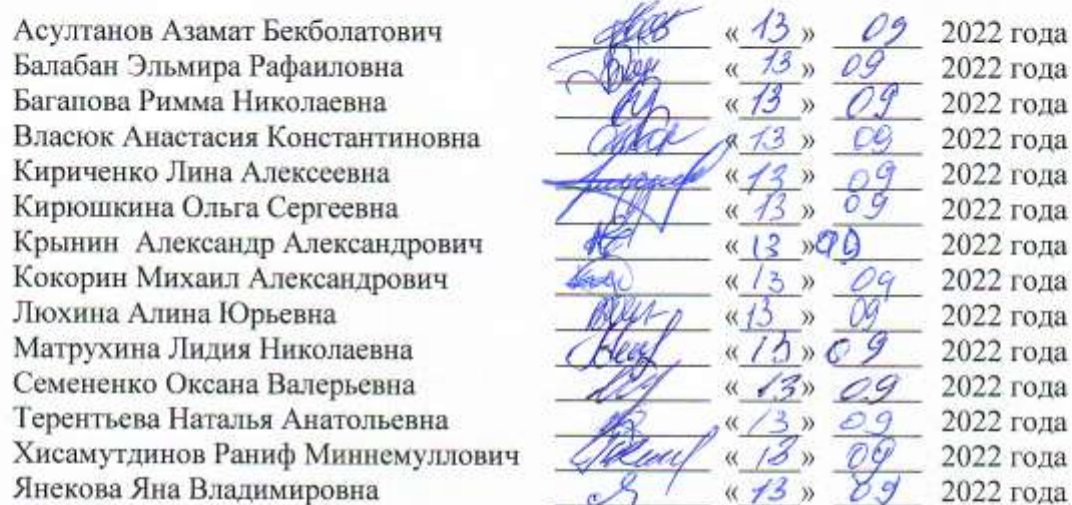 Асултанов Азамат Бекболатович « 13 » 09 2022 года
Балабан Эльмира Рафаиловна « 13 » 09 2022 года
Багапова Римма Николаевна « 13 » 09 2022 года
Власюк Анастасия Константиновна « 13 » 09 2022 года
Кириченко Лина Алексеевна « 13 » 09 2022 года
Кирюшкина Ольга Сергеевна « 13 » 09 2022 года
Крынин Александр Александрович « 13 » 09 2022 года
Кокорин Михаил Александрович « 13 » 09 2022 года
Люхина Алина Юрьевна « 13 » 09 2022 года
Матрухина Лидия Николаевна « 13 » 09 2022 года
Семененко Оксана Валерьевна « 13 » 09 2022 года
Терентьева Наталья Анатольевна « 13 » 09 2022 года
Хисамутдинов Раниф Миннемуллович « 13 » 09 2022 года
Янекова Яна Владимировна « 13 » 09 2022 года